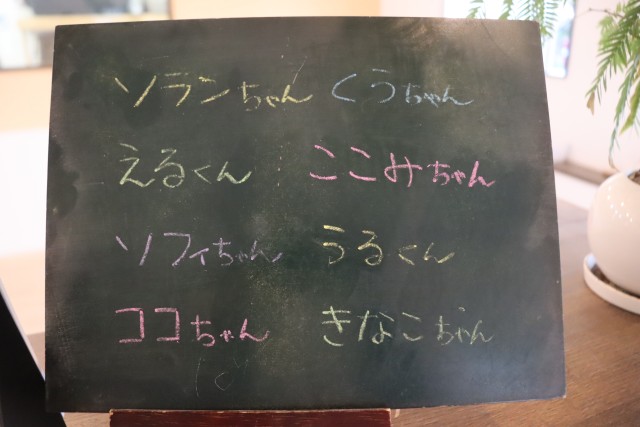 ソランちゃん くうちゃん
えるくん ここみちゃん
ソフィちゃん うるくん
ココちゃん きなこちゃん